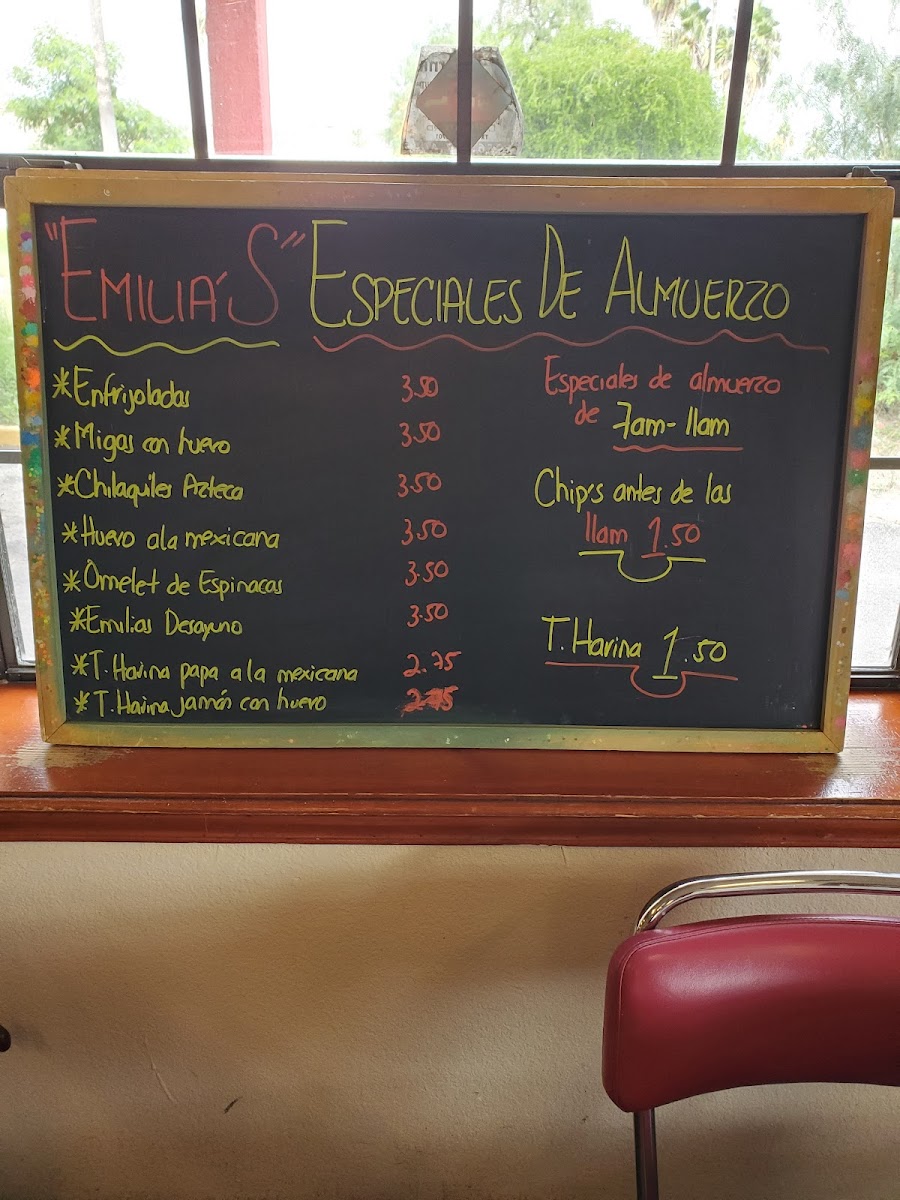 "EMILIA'S" ESPECIALES DE ALMUERZO
*Enfrijoladas 3.50
*Migas con huevo 3.50
*Chilaquiles Azteca 3.50
*Huevo ala mexicana 3.50
*Omelet de Espinacas 3.50
*Emilias Desayuno 3.50
*T. Harina papa a la mexicana 2.75
*T. Harina jamón con huevo 2.75
Especiales de almuerzo
de 7am-11am
Chip's antes de las
11am 1.50
T. Harina 1.50